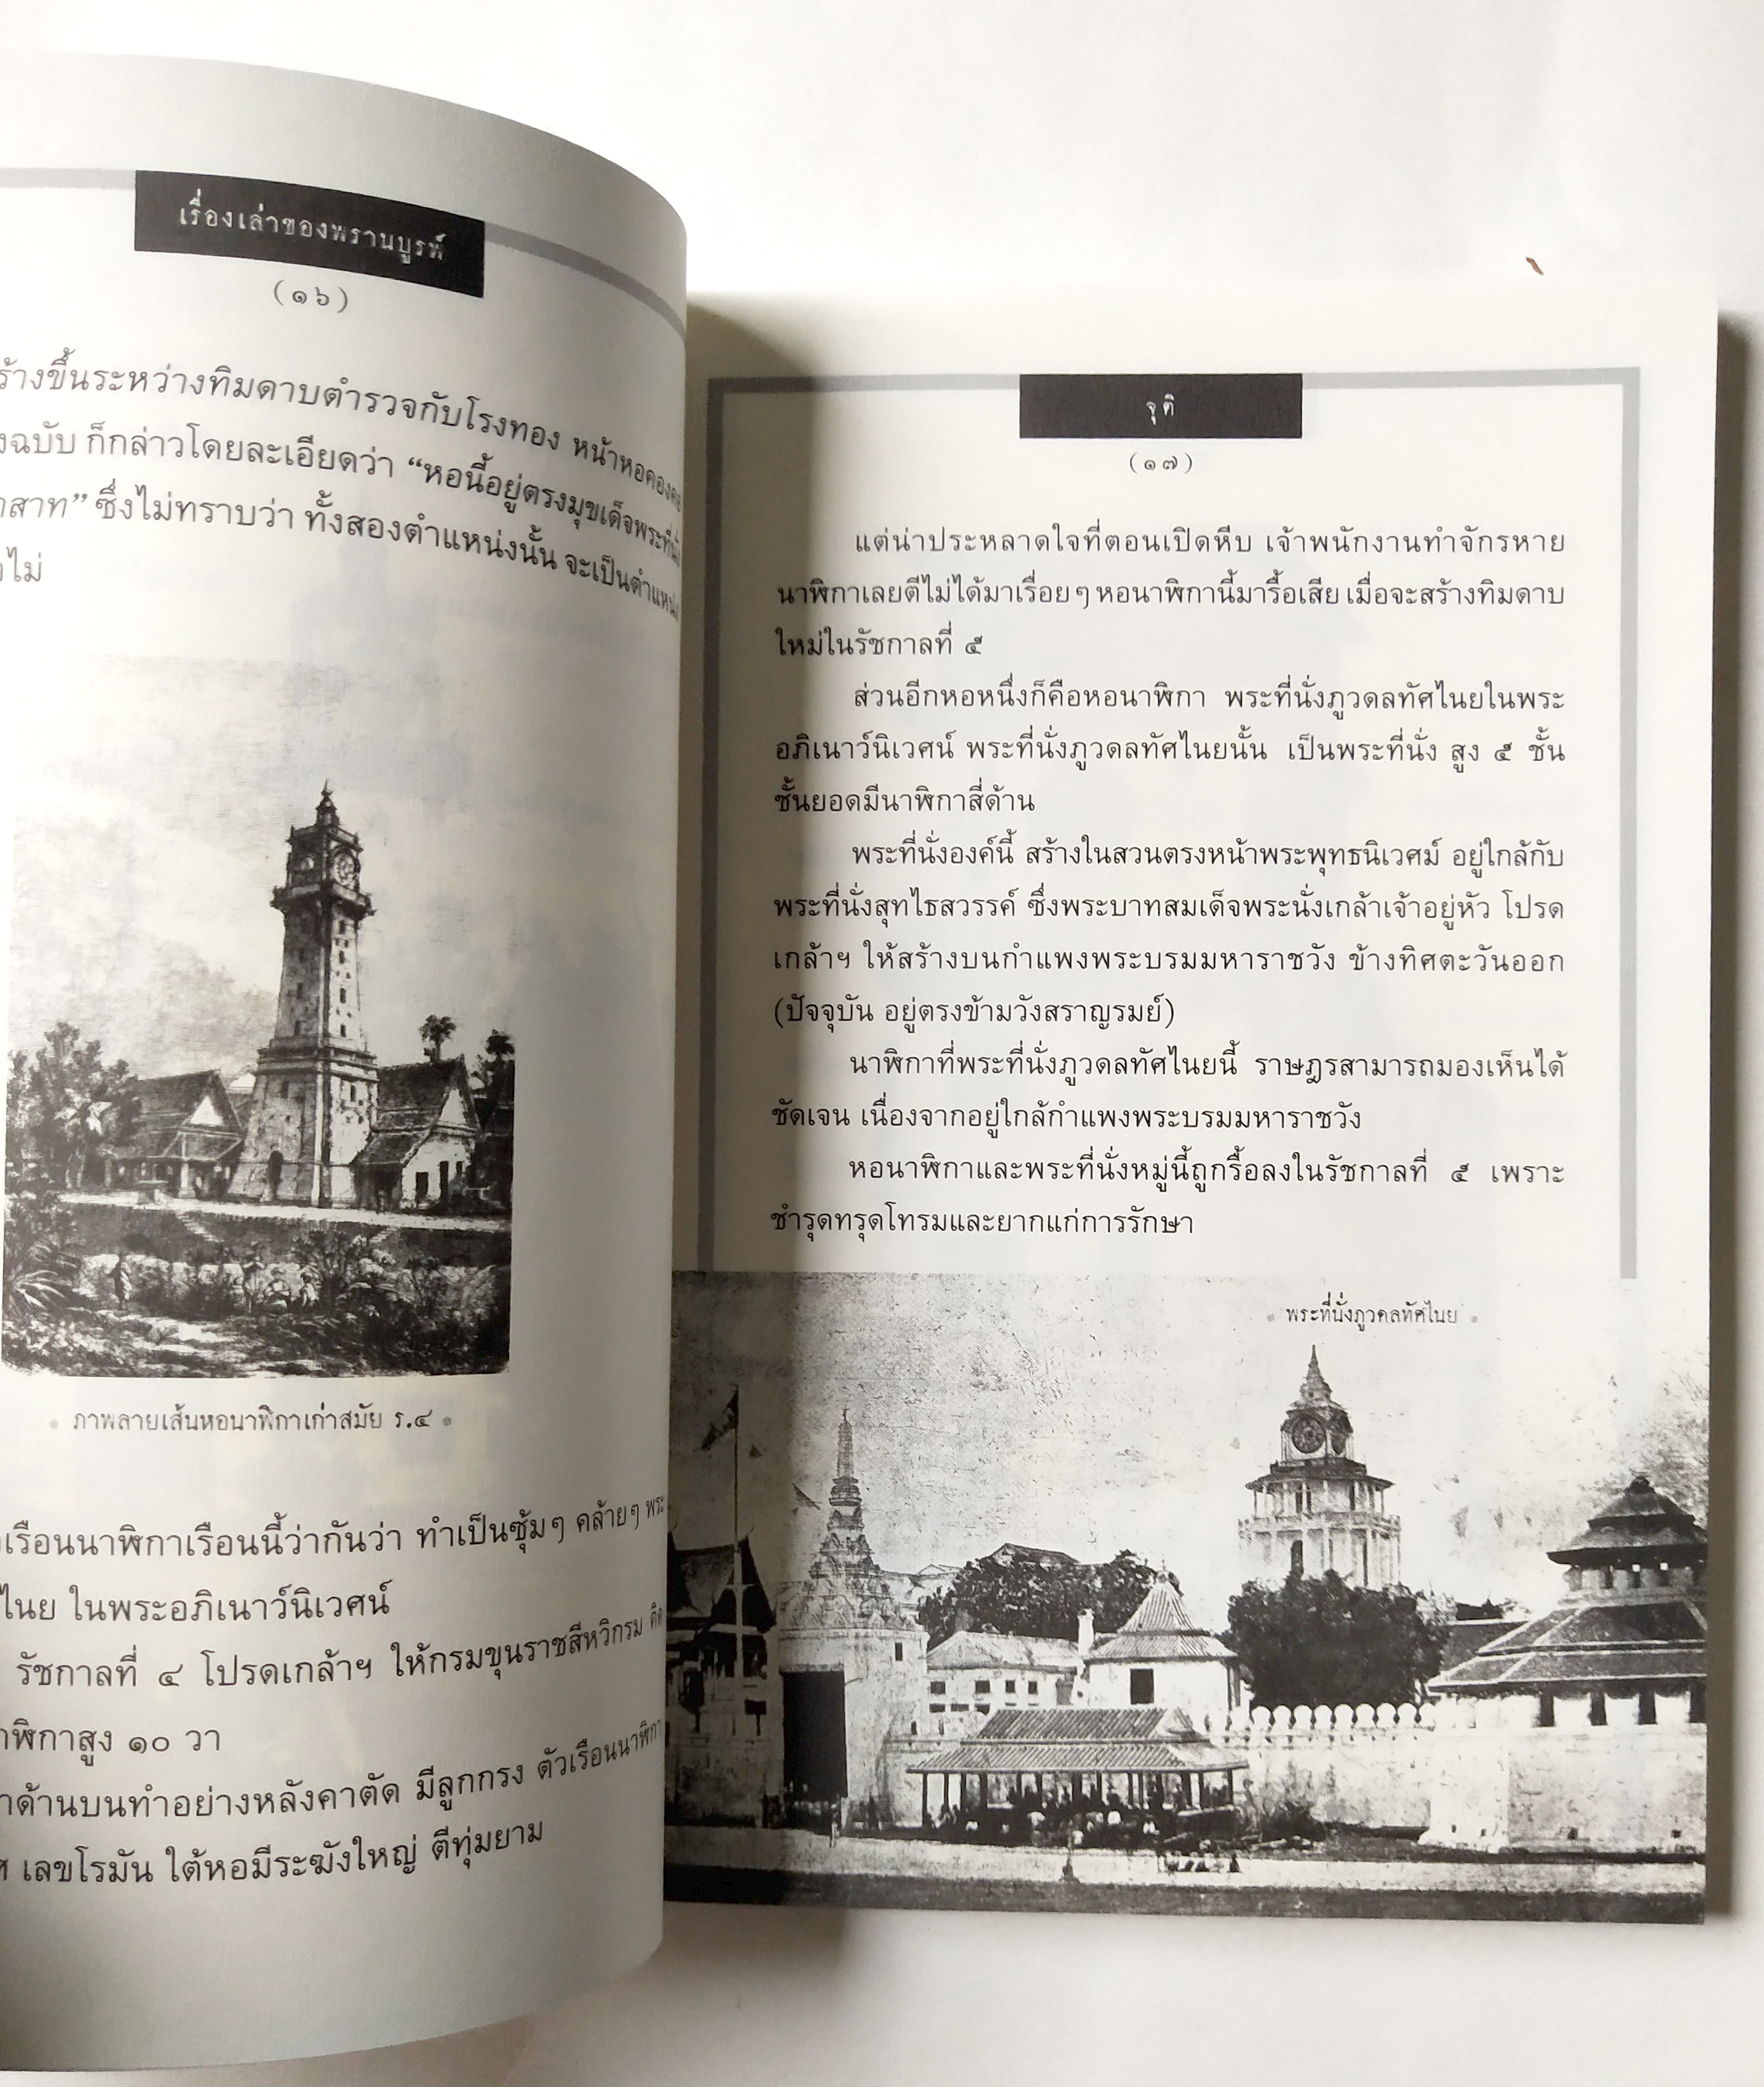 เรื่องเล่าของพรานบูรพ์
(๑๖)
ร้างขึ้นระหว่างทิมดาบตำรวจกับโรงทอง หน้าหอคองคอย
งฉบับ ก็กล่าวโดยละเอียดว่า “หอนี้อยู่ตรงมุขเด็จพระที่นั่ง
าสาท” ซึ่งไม่ทราบว่า ทั้งสองตำแหน่งนั้น จะเป็นตำแหน่ง
ไม่
ภาพลายเส้นหอนาฬิกาเก่าสมัย ร.๔
เรือนนาฬิกาเรือนนี้ว่ากันว่า ทำเป็นซุ้มๆ คล้ายๆ พระ
ไนย ในพระอภิเนาว์นิเวศน์
รัชกาลที่ ๔ โปรดเกล้าฯ ให้กรมขุนราชสีหวิกรม คิด
าฬิกาสูง ๑๐ วา
าด้านบนทำอย่างหลังคาตัด มีลูกกรง ตัวเรือนนาฬิกา
เลขโรมัน ใต้หอมีระฆังใหญ่ ตีทุ่มยาม
จุติ
(๑๗)
แต่น่าประหลาดใจที่ตอนเปิดหีบ เจ้าพนักงานทำจักรหาย
นาฬิกาเลยตีไม่ได้มาเรื่อยๆ หอนาฬิกานี้มารื้อเสีย เมื่อจะสร้างทิมดาบ
ใหม่ในรัชกาลที่ ๕
ส่วนอีกหอหนึ่งก็คือหอนาฬิกา พระที่นั่งภูวดลทัศไนยในพระ
อภิเนาว์นิเวศน์ พระที่นั่งภูวดลทัศไนยนั้น เป็นพระที่นั่ง สูง ๕ ชั้น
ชั้นยอดมีนาฬิกาสี่ด้าน
พระที่นั่งองค์นี้ สร้างในสวนตรงหน้าพระพุทธนิเวศม์ อยู่ใกล้กับ
พระที่นั่งสุทไธสวรรค์ ซึ่งพระบาทสมเด็จพระนั่งเกล้าเจ้าอยู่หัว โปรด
เกล้าฯ ให้สร้างบนกำแพงพระบรมมหาราชวัง ข้างทิศตะวันออก
(ปัจจุบัน อยู่ตรงข้ามวังสราญรมย์)
นาฬิกาที่พระที่นั่งภูวดลทัศไนยนี้ ราษฎรสามารถมองเห็นได้
ชัดเจน เนื่องจากอยู่ใกล้กำแพงพระบรมมหาราชวัง
หอนาฬิกาและพระที่นั่งหมู่นี้ถูกรื้อลงในรัชกาลที่ ๕ เพราะ
ชำรุดทรุดโทรมและยากแก่การรักษา
พระที่นั่งภูวดลทัศไนย